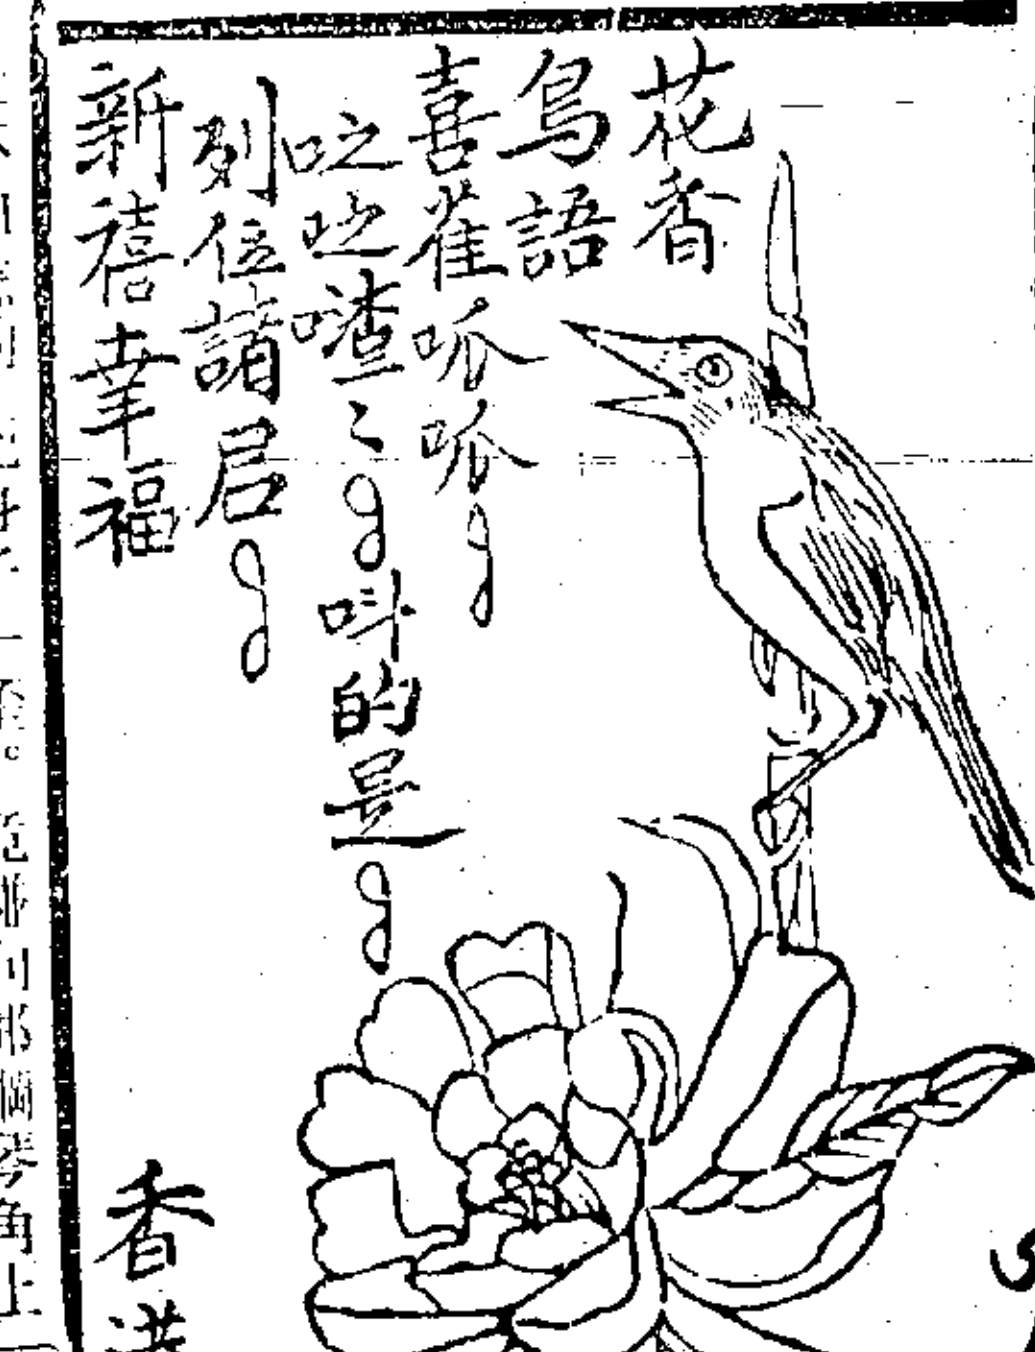 花香
鳥語
喜雀呱呱
吱吱喳〻叫的是
列位諸君
新禧幸福
香港